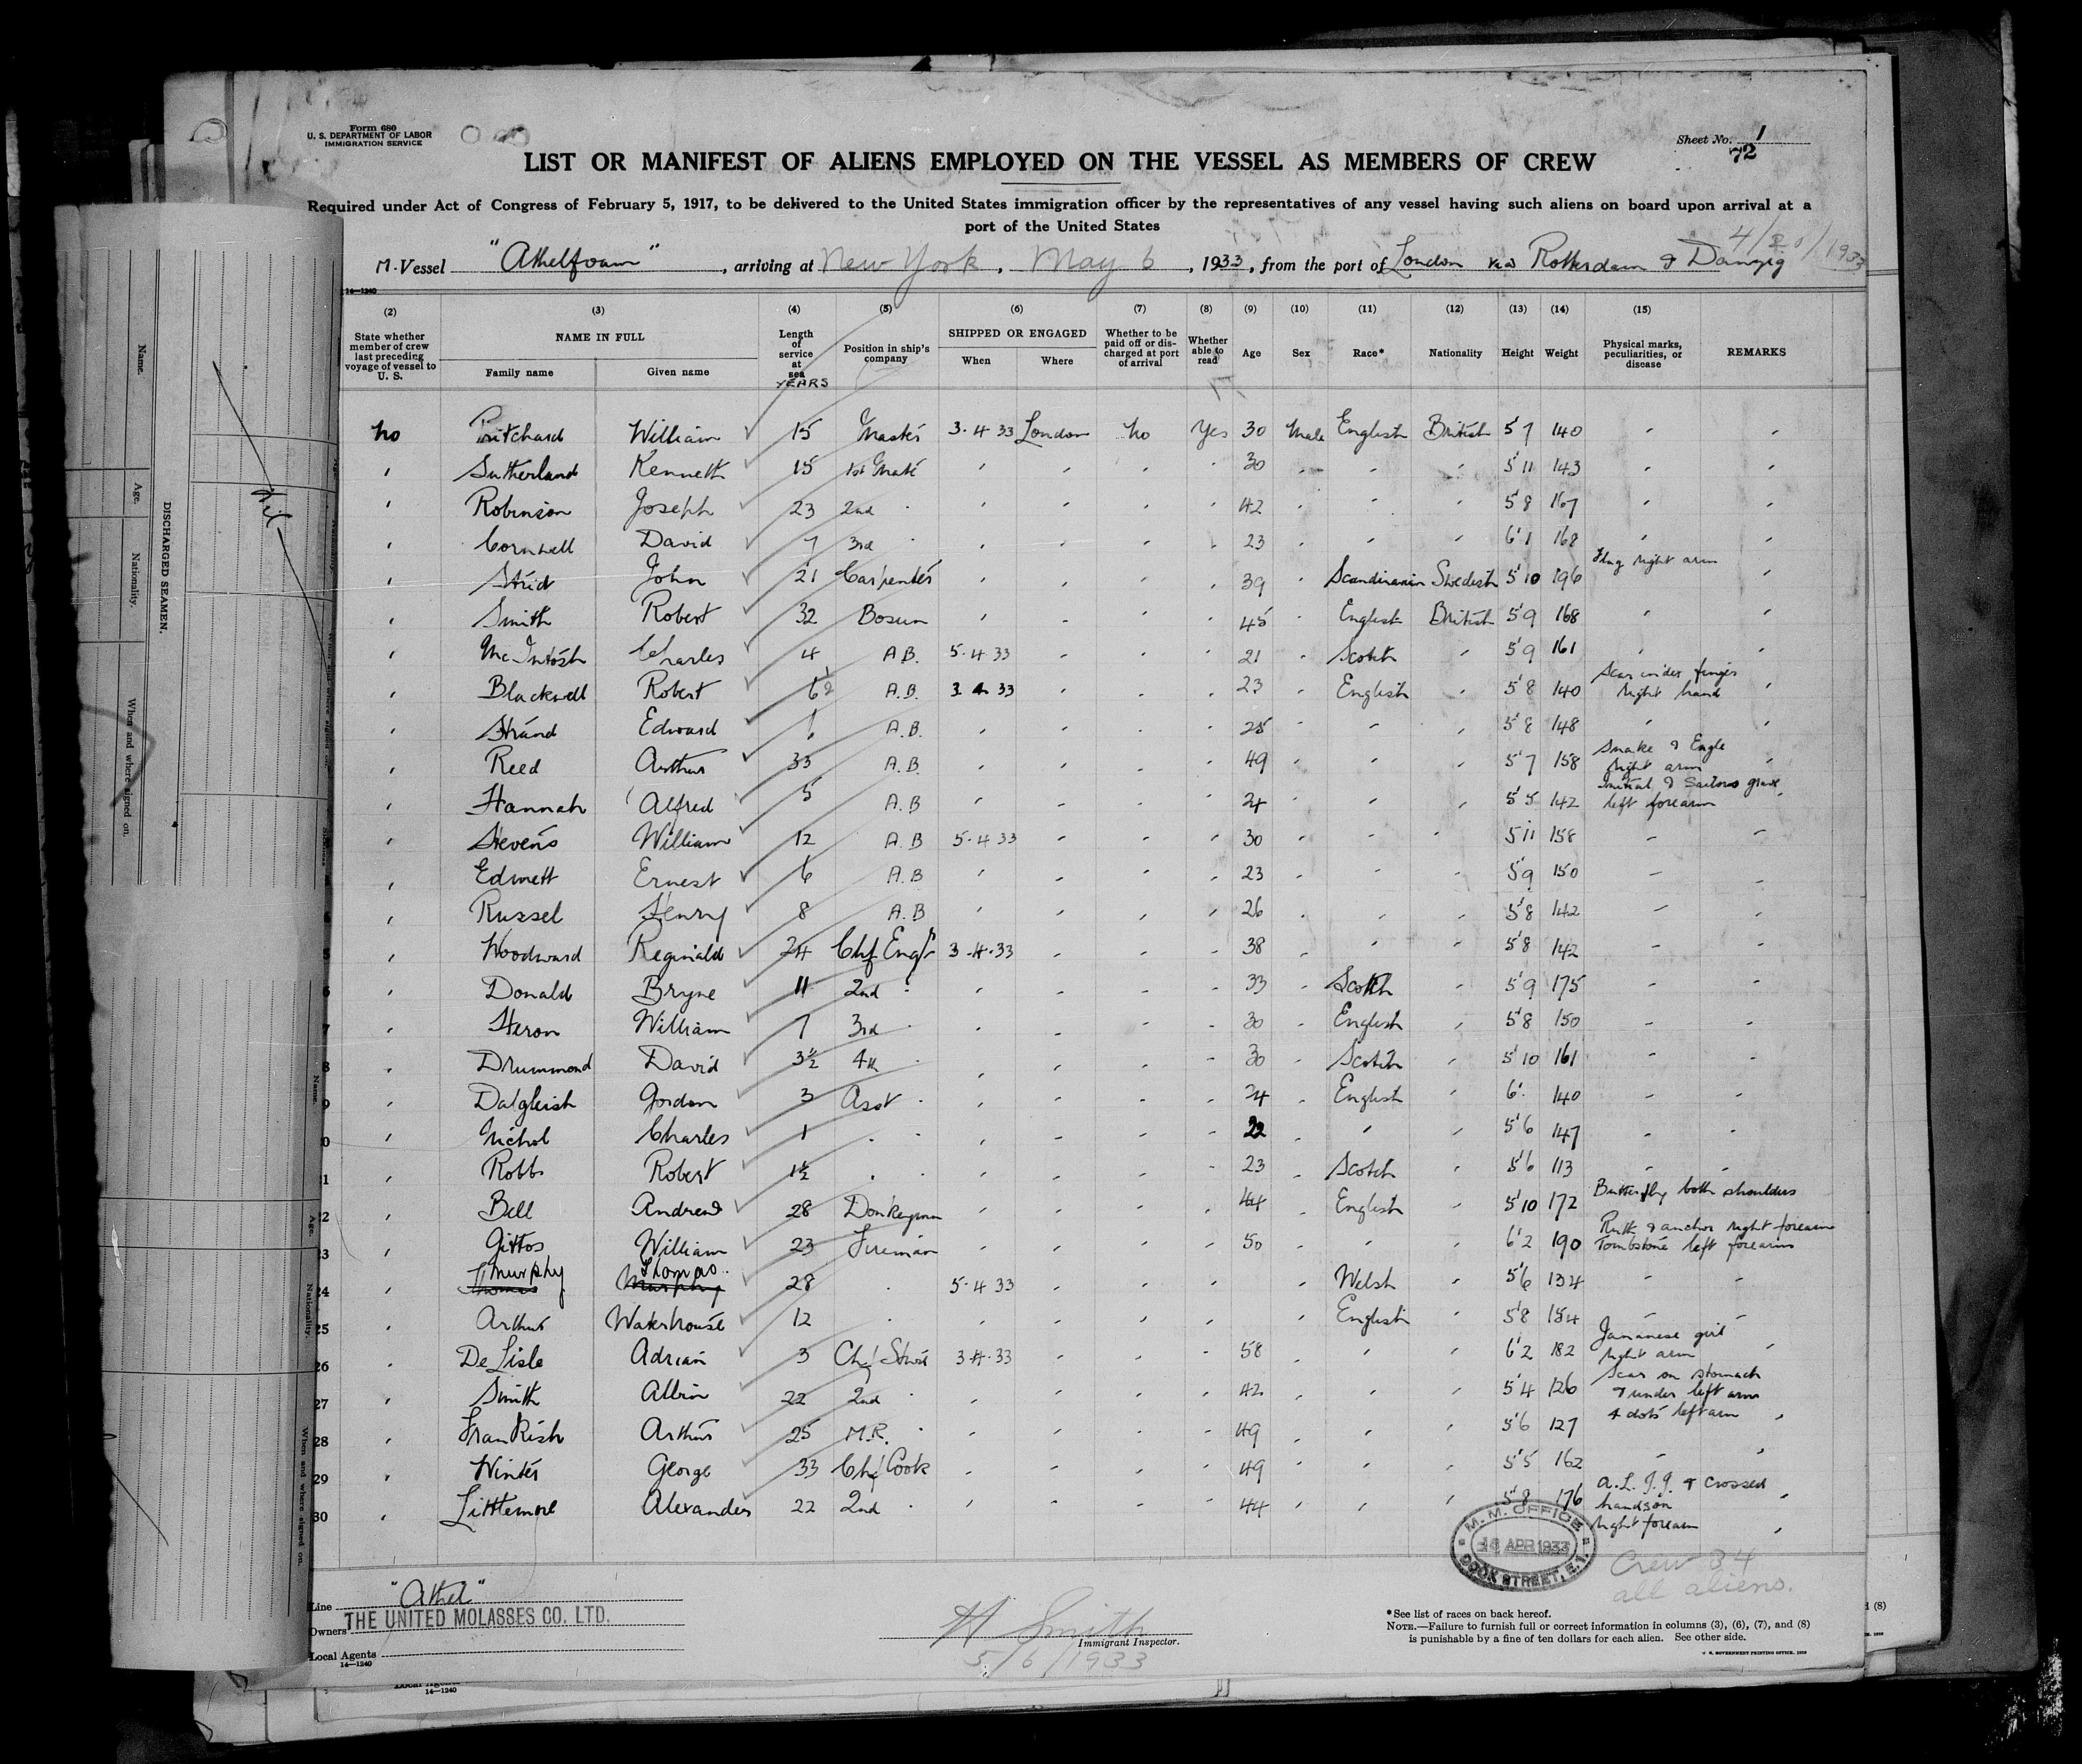 Form 680
U. S. DEPARTMENT OF LABOR
IMMIGRATION SERVICE
Sheet No. 1
72
LIST OR MANIFEST OF ALIENS EMPLOYED ON THE VESSEL AS MEMBERS OF CREW
Required under Act of Congress of February 5, 1917, to be delivered to the United States immigration officer by the representatives of any vessel having such aliens on board upon arrival at a
port of the United States
4/20/1933
M. Vessel "Athelfoam", arriving at New York, May 6, 1933, from the port of London via Rotterdam & Danzig
14—1240
(2) (3) (4) (5) (6) (7) (8) (9) (10) (11) (12) (13) (14) (15)
State whether member of crew last preceding voyage of vessel to U. S. NAME IN FULL Family name Given name Length of service at sea YEARS Position in ship's company SHIPPED OR ENGAGED When Where Whether to be paid off or discharged at port of arrival Whether able to read Age Sex Race* Nationality Height Weight Physical marks, peculiarities, or disease REMARKS
No Pritchard William 15 Master 3.4.33 London No Yes 30 Male English British 5'7 140
Sutherland Kenneth 15 1st Mate 30 5'11 143
Robinson Joseph 23 2nd 42 5'8 167
Cornwell David 7 3rd 23 6'1 168
Strid John 21 Carpenter 39 Scandinavian Swedish 5'10 196 Flag right arm
Smith Robert 32 Bosun 45 English British 5'9 168
McIntosh Charles 4 A.B. 5.4.33 21 Scotch 5'9 161
Blackwell Robert 6½ A.B. 3.4.33 23 English 5'8 140 Scar index finger right hand
Strand Edward A.B. 25 5'8 148
Reed Arthur 33 A.B. 49 5'7 158 Snake & Eagle right arm
Hannah Alfred 5 A.B 24 5'5 142 Initial & Sailors grave left forearm
Stevens William 12 A.B 5.4.33 30 5'11 158
Edmett Ernest 6 A.B 23 5'9 150
Russel Henry 8 A.B 26 5'8 142
Woodward Reginald 24 Chf Engr 3.4.33 38 5'8 142
Donald Bryne 11 2nd 33 Scotch 5'9 175
Heron William 7 3rd 30 English 5'8 150
Drummond David 3½ 4th 30 Scotch 5'10 161
Dalgleish Gordon 3 Asst 24 English 6' 140
Nichol Charles 1 22 5'6 147
Robb Robert 1½ 23 Scotch 5'6 113
Bell Andrew 28 Donkeyman 44 English 5'10 172 Butterfly both shoulders
Gittos William 23 Fireman 50 6'2 190 Ruth & anchor right forearm Tombstone left forearm
24 Murphy Thomas Thomas Murphy 28 5.4.33 Welsh 5'6 134
25 Arthur Waterhouse 12 English 5'8 154
26 De Lisle Adrian 3 Chf Stwd 3.4.33 58 6'2 182 Japanese girl right arm
27 Smith Albin 22 2nd 42 5'4 126 Scar on stomach & under left arm
28 Frankish Arthur 25 M.R. 49 5'6 127 4 dots left arm
29 Winter George 33 Chf Cook 49 5'5 162
30 Littlemore Alexander 22 2nd 44 5'8 176 A.L. & crossed hands on right forearm
M. M. OFFICE
APR 1933
DOCK STREET, E.1.
Crew 34
all aliens.
Line "Athel"
Owners THE UNITED MOLASSES CO. LTD.
Local Agents
14—1240
H Smith
Immigrant Inspector.
5/6/1933
*See list of races on back hereof.
NOTE.—Failure to furnish full or correct information in columns (3), (6), (7), and (8)
is punishable by a fine of ten dollars for each alien. See other side.
U. S. GOVERNMENT PRINTING OFFICE
Name.
Age.
Nationality.
When and where signed on.
DISCHARGED SEAMEN.
Nil
Name.
Age.
Nationality.
When and where signed on.
14—1240